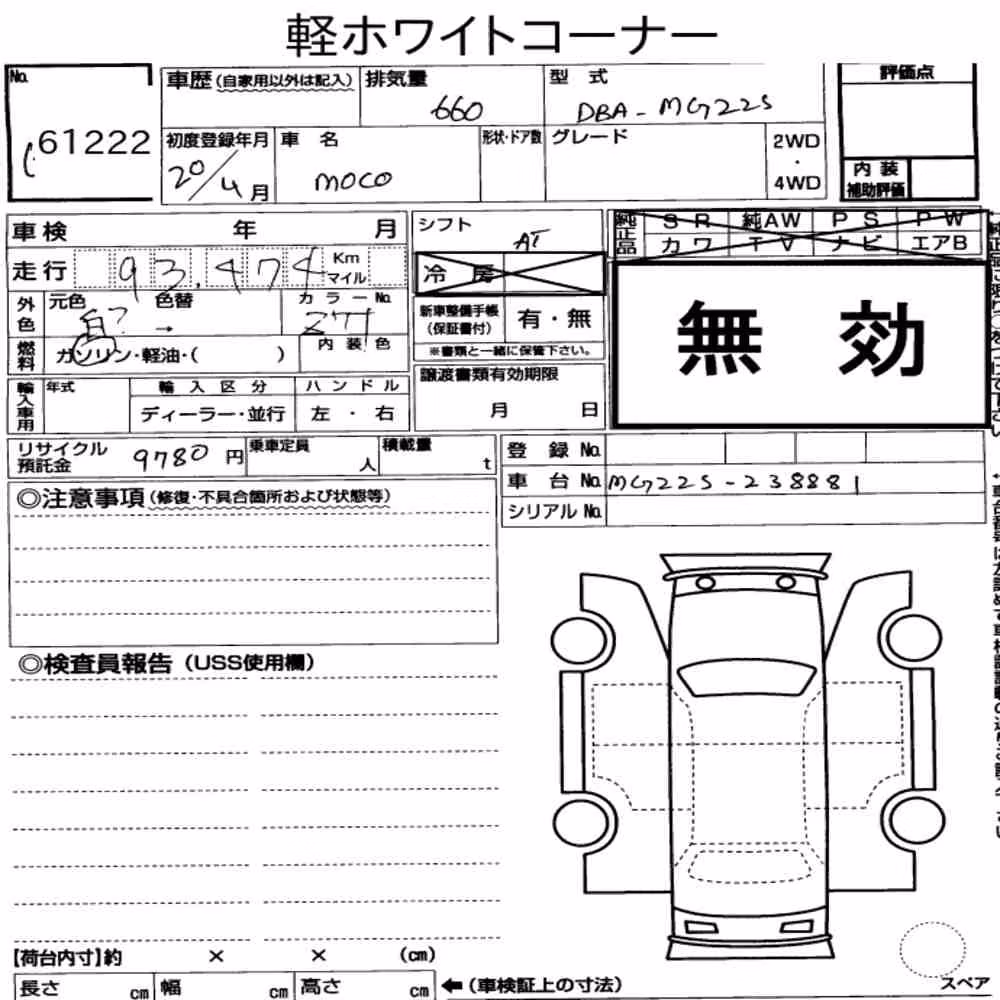 軽ホワイトコーナー
No. 61222
車歴(自家用以外は記入) 排気量 660 型式 DBA-MG22S
評価点
初度登録年月 20/4月 車名 MOCO 形状・ドア数 グレード 2WD・4WD
内装補助評価
車検 年 月 シフト AT
純正品 SR 純AW PS PW
カワ TV ナビ エアB
走行 93,474 Km マイル
冷房
外色 元色 色替 → カラーNo. Z71
内装色
新車整備手帳(保証書付) 有・無
※書類と一緒に保管下さい。
無効
燃料 ガソリン・軽油・( )
輸入車用 年式 輸入区分 ディーラー・並行 ハンドル 左・右
譲渡書類有効期限
月 日
リサイクル預託金 9780円 乗車定員 人 積載量 t
登録No.
車台No. MG22S-238881
シリアルNo.
◎注意事項(修復・不具合箇所および状態等)
◎検査員報告(USS使用欄)
【荷台内寸】約 × × (cm)
長さ cm 幅 cm 高さ cm ←(車検証上の寸法)
スペア